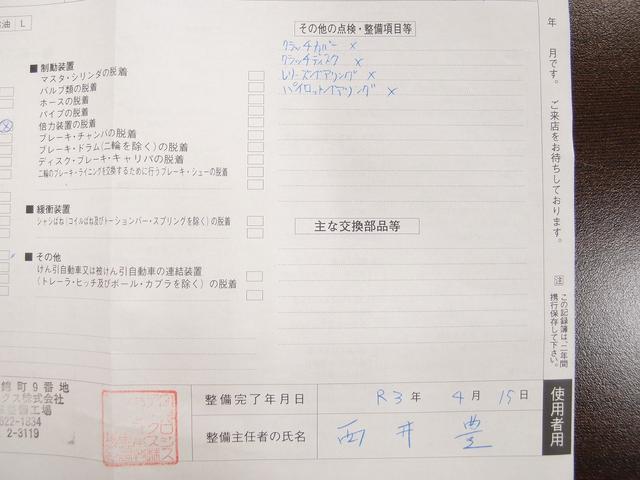 給油 L
その他の点検・整備項目等
クラッチカバー ×
クラッチディスク ×
レリーズベアリング ×
パイロットベアリング ×
■ 制動装置
マスタ・シリンダの脱着
バルブ類の脱着
ホースの脱着
パイプの脱着
倍力装置の脱着
ブレーキ・チャンバの脱着
ブレーキ・ドラム(二輪を除く)の脱着
ディスク・ブレーキ・キャリパの脱着
二輪のブレーキ・ライニングを交換するために行うブレーキ・シューの脱着
■ 緩衝装置
シャシばね(コイルばね及びトーションバー・スプリングを除く)の脱着
主な交換部品等
■ その他
けん引自動車又は被けん引自動車の連結装置
(トレーラ・ヒッチ及びボール・カプラを除く)の脱着
年 月です。 ご来店をお待ちしております。
注 この記録簿は、二年間
携行保存して下さい。
使用者用
錦町9番地
クス株式会社
整備工場
622-1834
2-3119
整備完了年月日 R3年 4月 15日
整備主任者の氏名 西井 豊